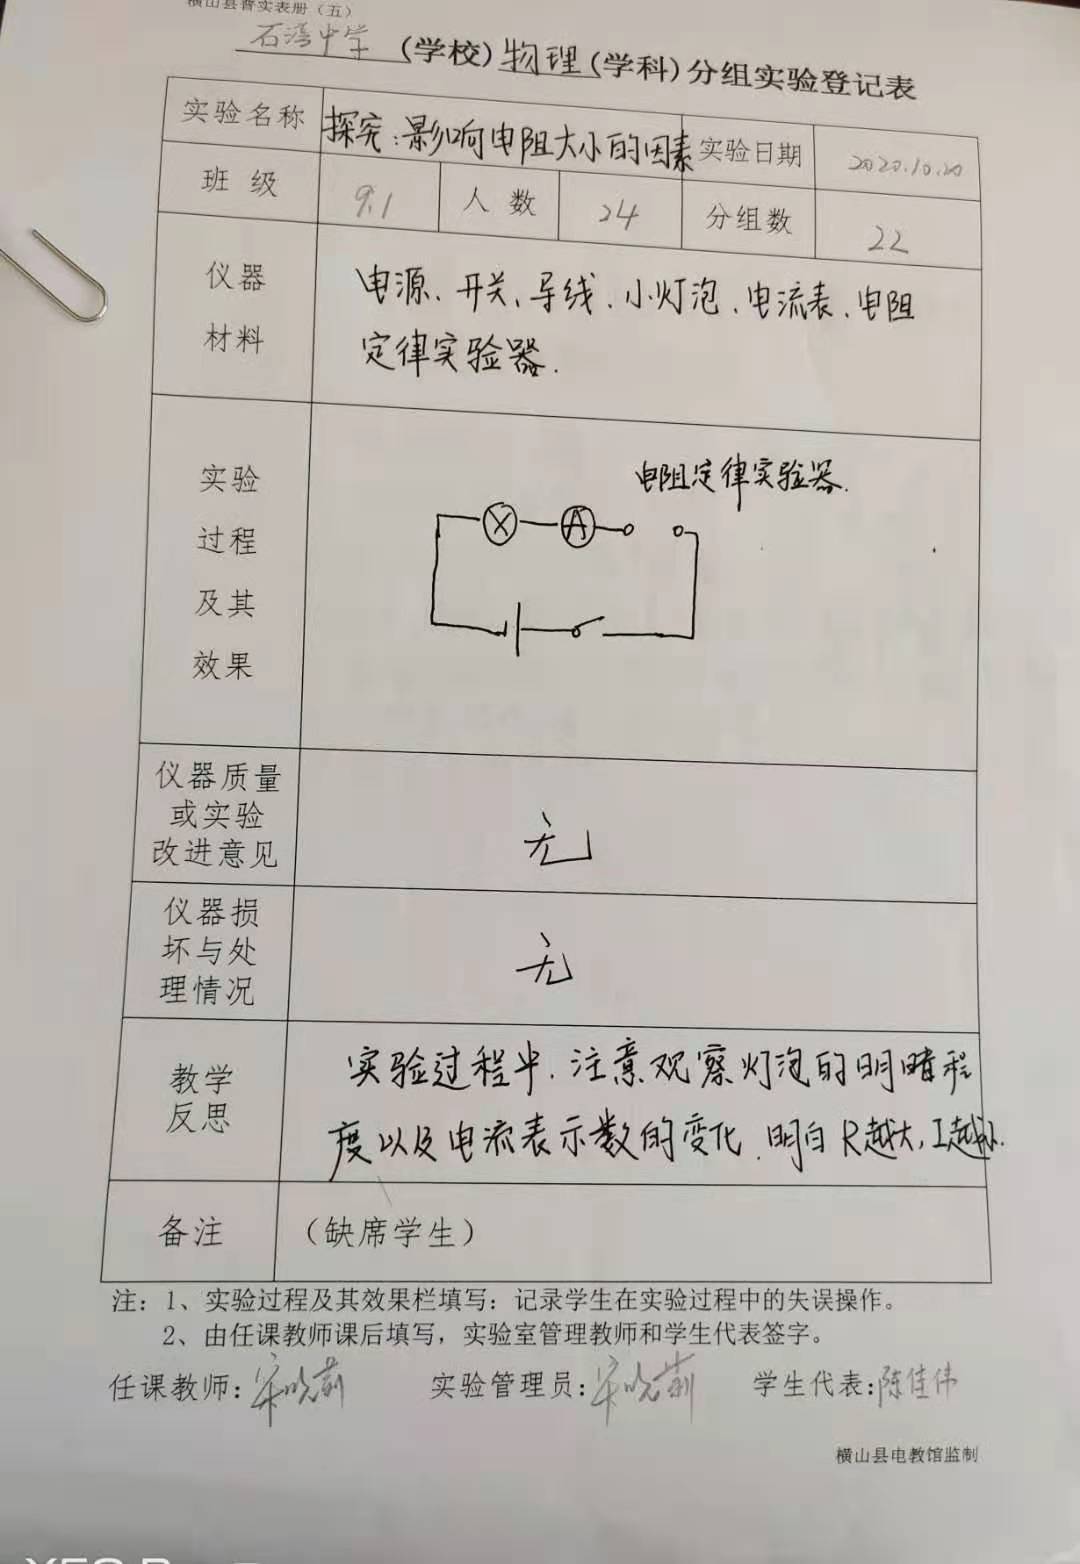 横山县普实表册（五）
石湾中学（学校）物理（学科）分组实验登记表
实验名称 探究：影响电阻大小的因素 实验日期 2020.10.20
班级 9.1 人数 24 分组数 22
仪器 电源、开关、导线、小灯泡、电流表、电阻
材料 定律实验器.
实验 电阻定律实验器.
A
过程
及其
效果
仪器质量
或实验 无
改进意见
仪器损
坏与处 无
理情况
教学 实验过程中.注意观察灯泡的明暗程
反思 度以及电流表示数的变化.明白R越大,I越小.
备注 （缺席学生）
注：1、实验过程及其效果栏填写：记录学生在实验过程中的失误操作。
2、由任课教师课后填写，实验室管理教师和学生代表签字。
任课教师：宋晓莉 实验管理员：宋晓莉 学生代表：陈佳伟
横山县电教馆监制